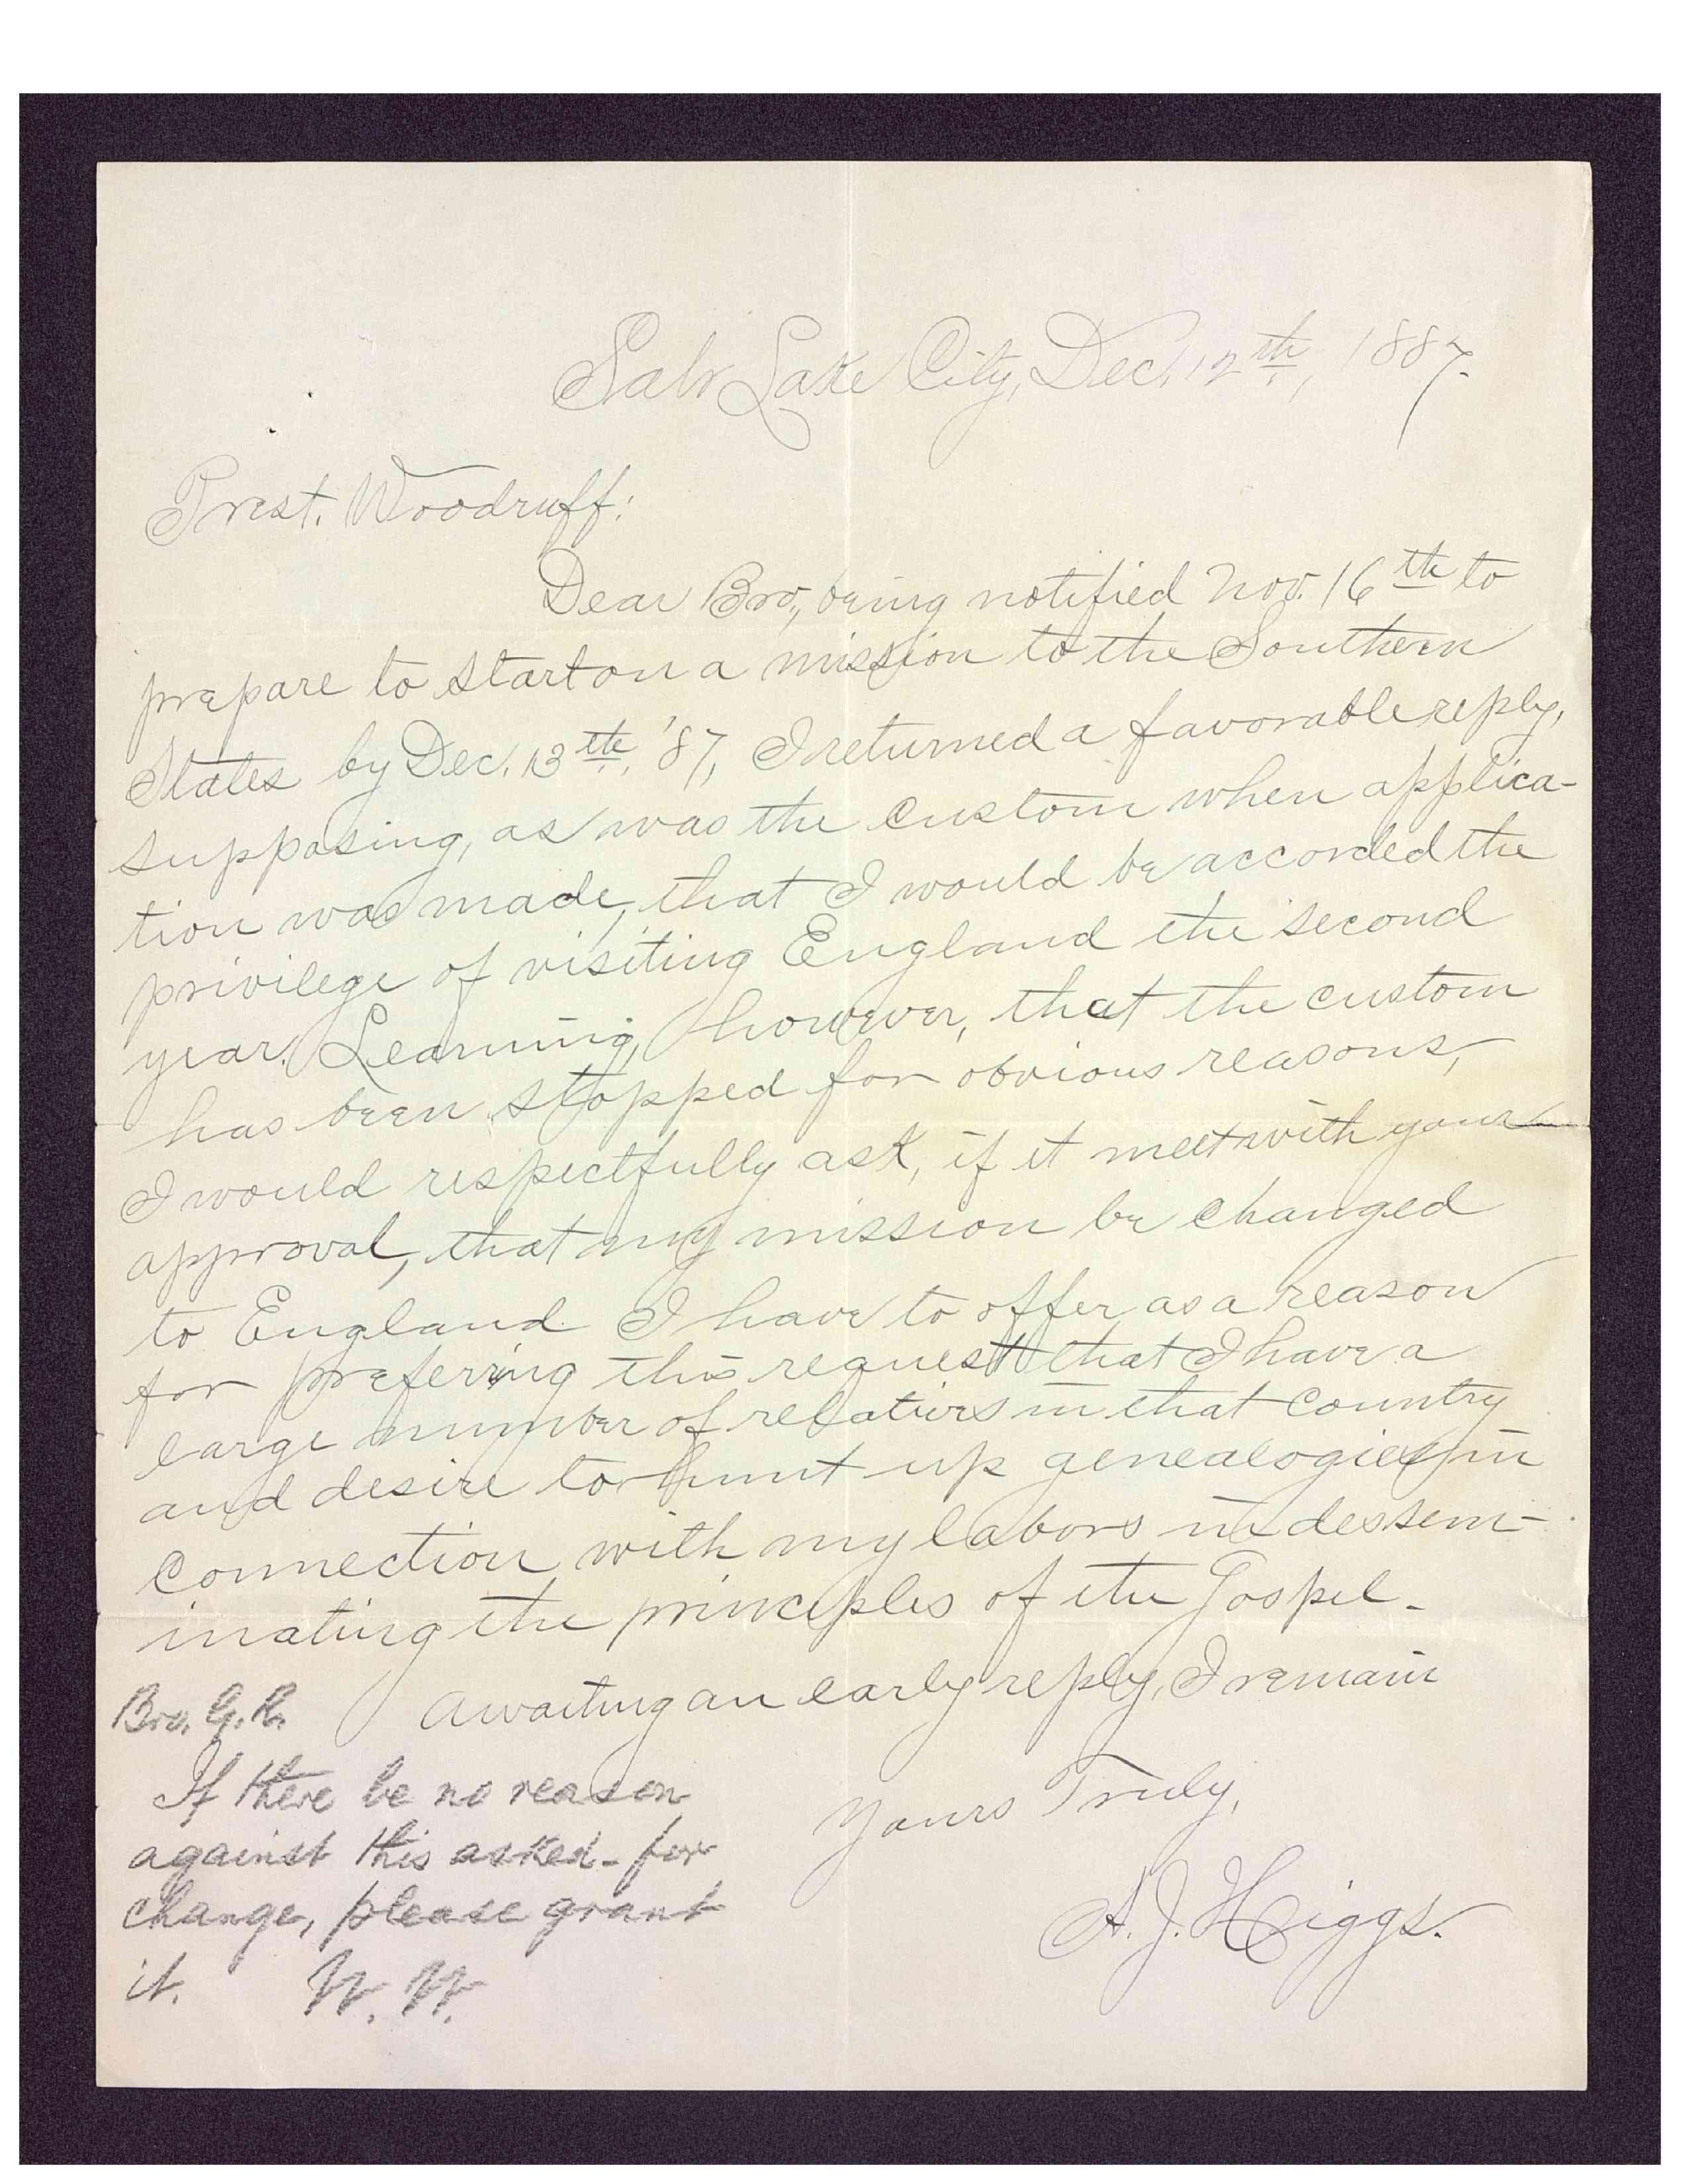 Salt Lake City, Dec. 12th, 1887.
Prest. Woodruff:
Dear Bro., being notified Nov. 16th to
prepare to start on a mission to the Southern
States by Dec. 13th, '87, I returned a favorable reply,
supposing, as was the custom when applica-
tion was made, that I would be accorded the
privilege of visiting England the second
year. Learning, however, that the custom
has been stopped for obvious reasons,
I would respectfully ask, if it meet with your
approval, that my mission be changed
to England. I have to offer as a reason
for prefering this request that I have a
large number of relatives in that country
and desire to hunt up genealogies in
connection with my labors in dessem-
inating the principles of the Gospel.
Awaiting an early reply, I remain
Yours Truly,
A. J. Higgs.
Bro. G. R.
If there be no reason
against this asked-for
change, please grant
it. W. W.